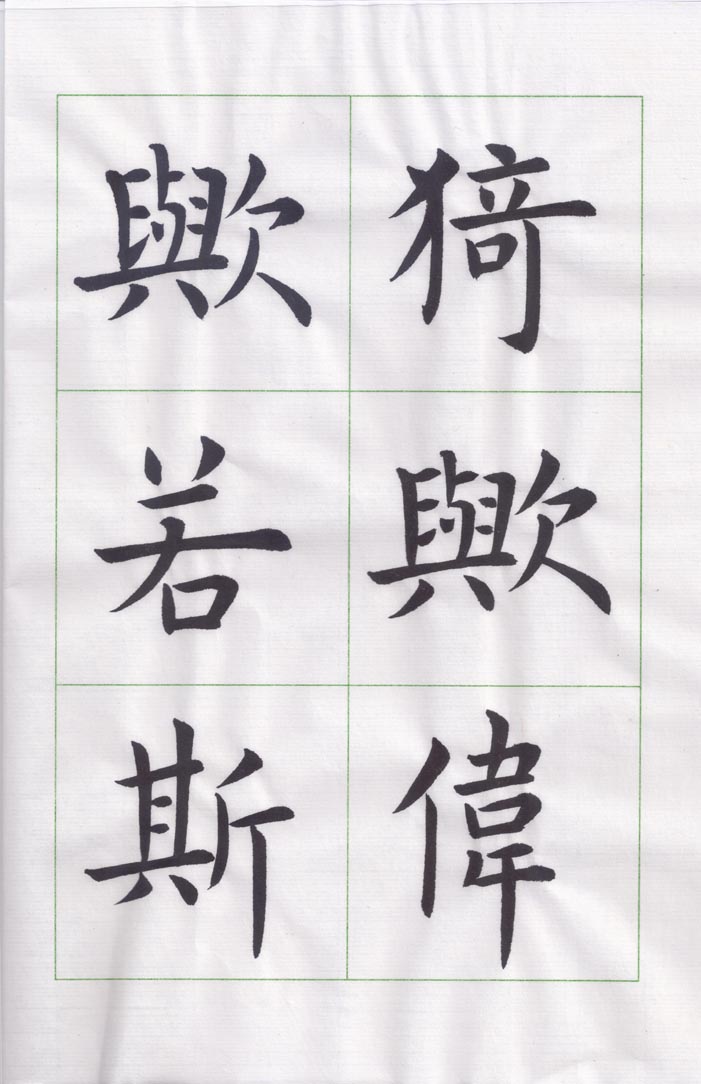 猗歟偉
歟若斯